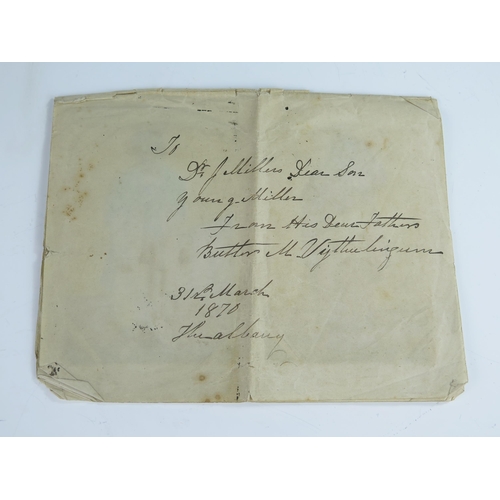 To
Dr J Millers Dear Son
Young Miller
From His Dear Fathers
Buttler M. Vythelingum
31st March
1870
Thealbany